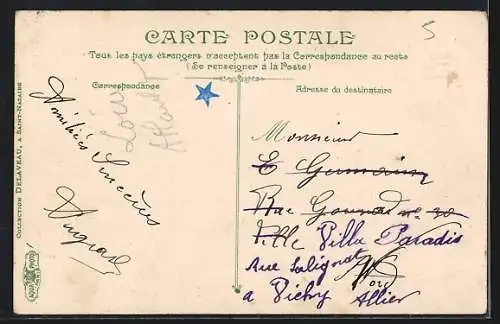 CARTE POSTALE
Tous les pays étrangers n'acceptent pas la Correspondance au recto
(Se renseigner à la Poste)
Correspondance
Adresse du destinataire
COLLECTION DELAVEAU, A SAINT-NAZAIRE
Amitiées Sincères
5
Monsieur
E Germain
Rue Gounod
Ville Villa Paradis
Rue Salignat
a Vichy Allier